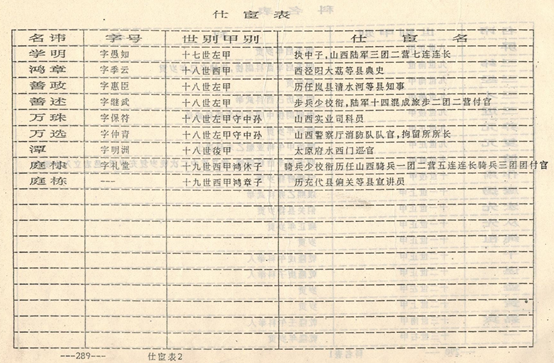 仕宦表
名讳 字号 世别甲别 仕宦名
学明 字愚如 十七世左甲 扶中子,山西陆军三团二营七连连长
鸿章 字季云 十八世西甲 西泾阳大荔等县典史
善政 字惠臣 十八世左甲 历任岚县清水河等县知事
善述 字继武 十八世左甲 步兵少校衔,陆军十四混成旅步二团二营付官
万珠 字保符 十八世左甲守中孙 山西实业司科员
万选 字仲青 十八世左甲守中孙 山西警察厅消防队队官,拘留所所长
潭 字明洲 十八世後甲 太原府水西门巡官
庭棋 字礼堂 十九世西甲鸿休子 骑兵少校衔历任山西骑兵一团二营五连连长骑兵三团团付官
庭栋 --- 十九世西甲鸿章子 历充代县偏关等县宣讲员
---289--- 仕宦表2